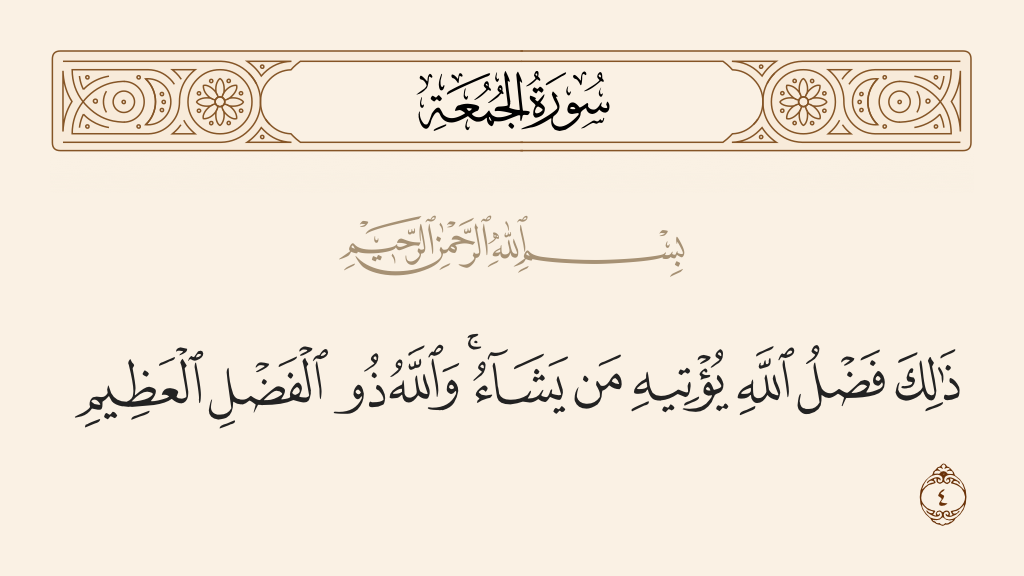 سُورَةُ الجُمُعَةِ
بِسْمِ ٱللَّهِ ٱلرَّحْمَٰنِ ٱلرَّحِيمِ
ذَٰلِكَ فَضْلُ ٱللَّهِ يُؤْتِيهِ مَن يَشَآءُ ۚ وَٱللَّهُ ذُو ٱلْفَضْلِ ٱلْعَظِيمِ
٤